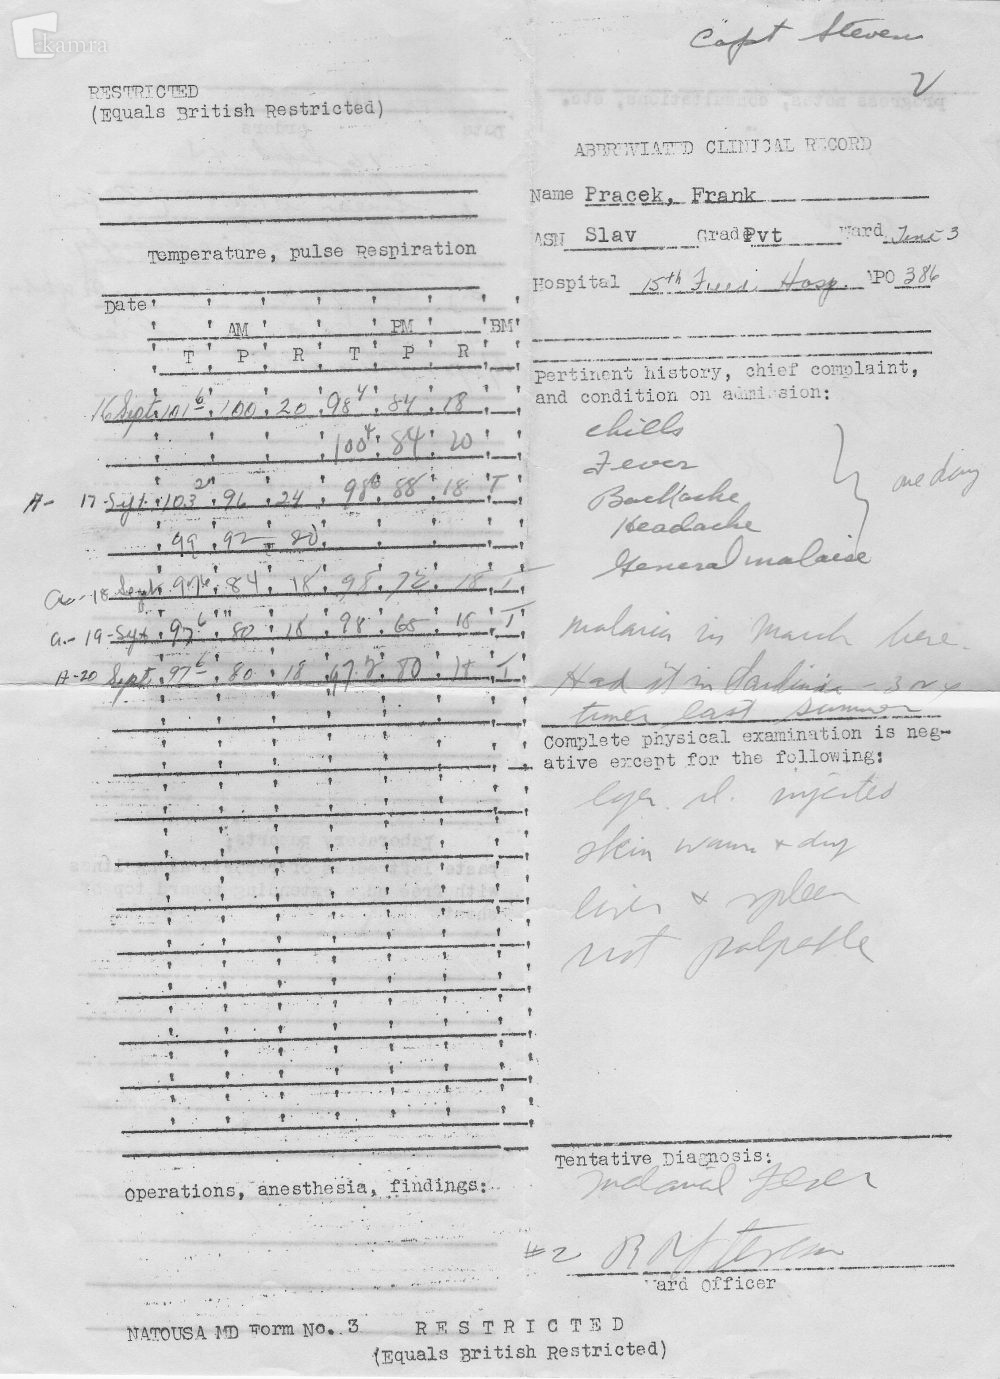 kamra
Capt Steven
2
RESTRICTED
(Equals British Restricted)
ABBREVIATED CLINICAL RECORD
Name Pracek, Frank
ASN Slav Grade Pvt Ward Tent 3
Hospital 15th Hosp. APO 386
Temperature, pulse Respiration
Date
AM PM BM
T P R T P R
16 Sept 101 6 100 20 98 4 84 18
100 4 84 20
A- 17-Sept 103 2 96 24 98 6 88 18 T
99 92 20
18 Sept 84 18 98 72 18 T
a.- 19-Sept 97 6 80 18 98 68 18 T
A-20 Sept 97 6 80 18 97.2 80 18 T
Pertinent history, chief complaint,
and condition on admission:
chills
Fever
Backache
Headache
General malaise
one day
malaria in March here.
Had it in Sardinia - 3 or 4
times last summer
Complete physical examination is neg-
ative except for the following:
eyes sl. injected
skin warm & dry
liver & spleen
not palpable
Tentative Diagnosis:
Malarial Fever
Operations, anesthesia, findings:
#2 R M Steven
Ward Officer
NATOUSA MD Form No. 3
RESTRICTED
(Equals British Restricted)